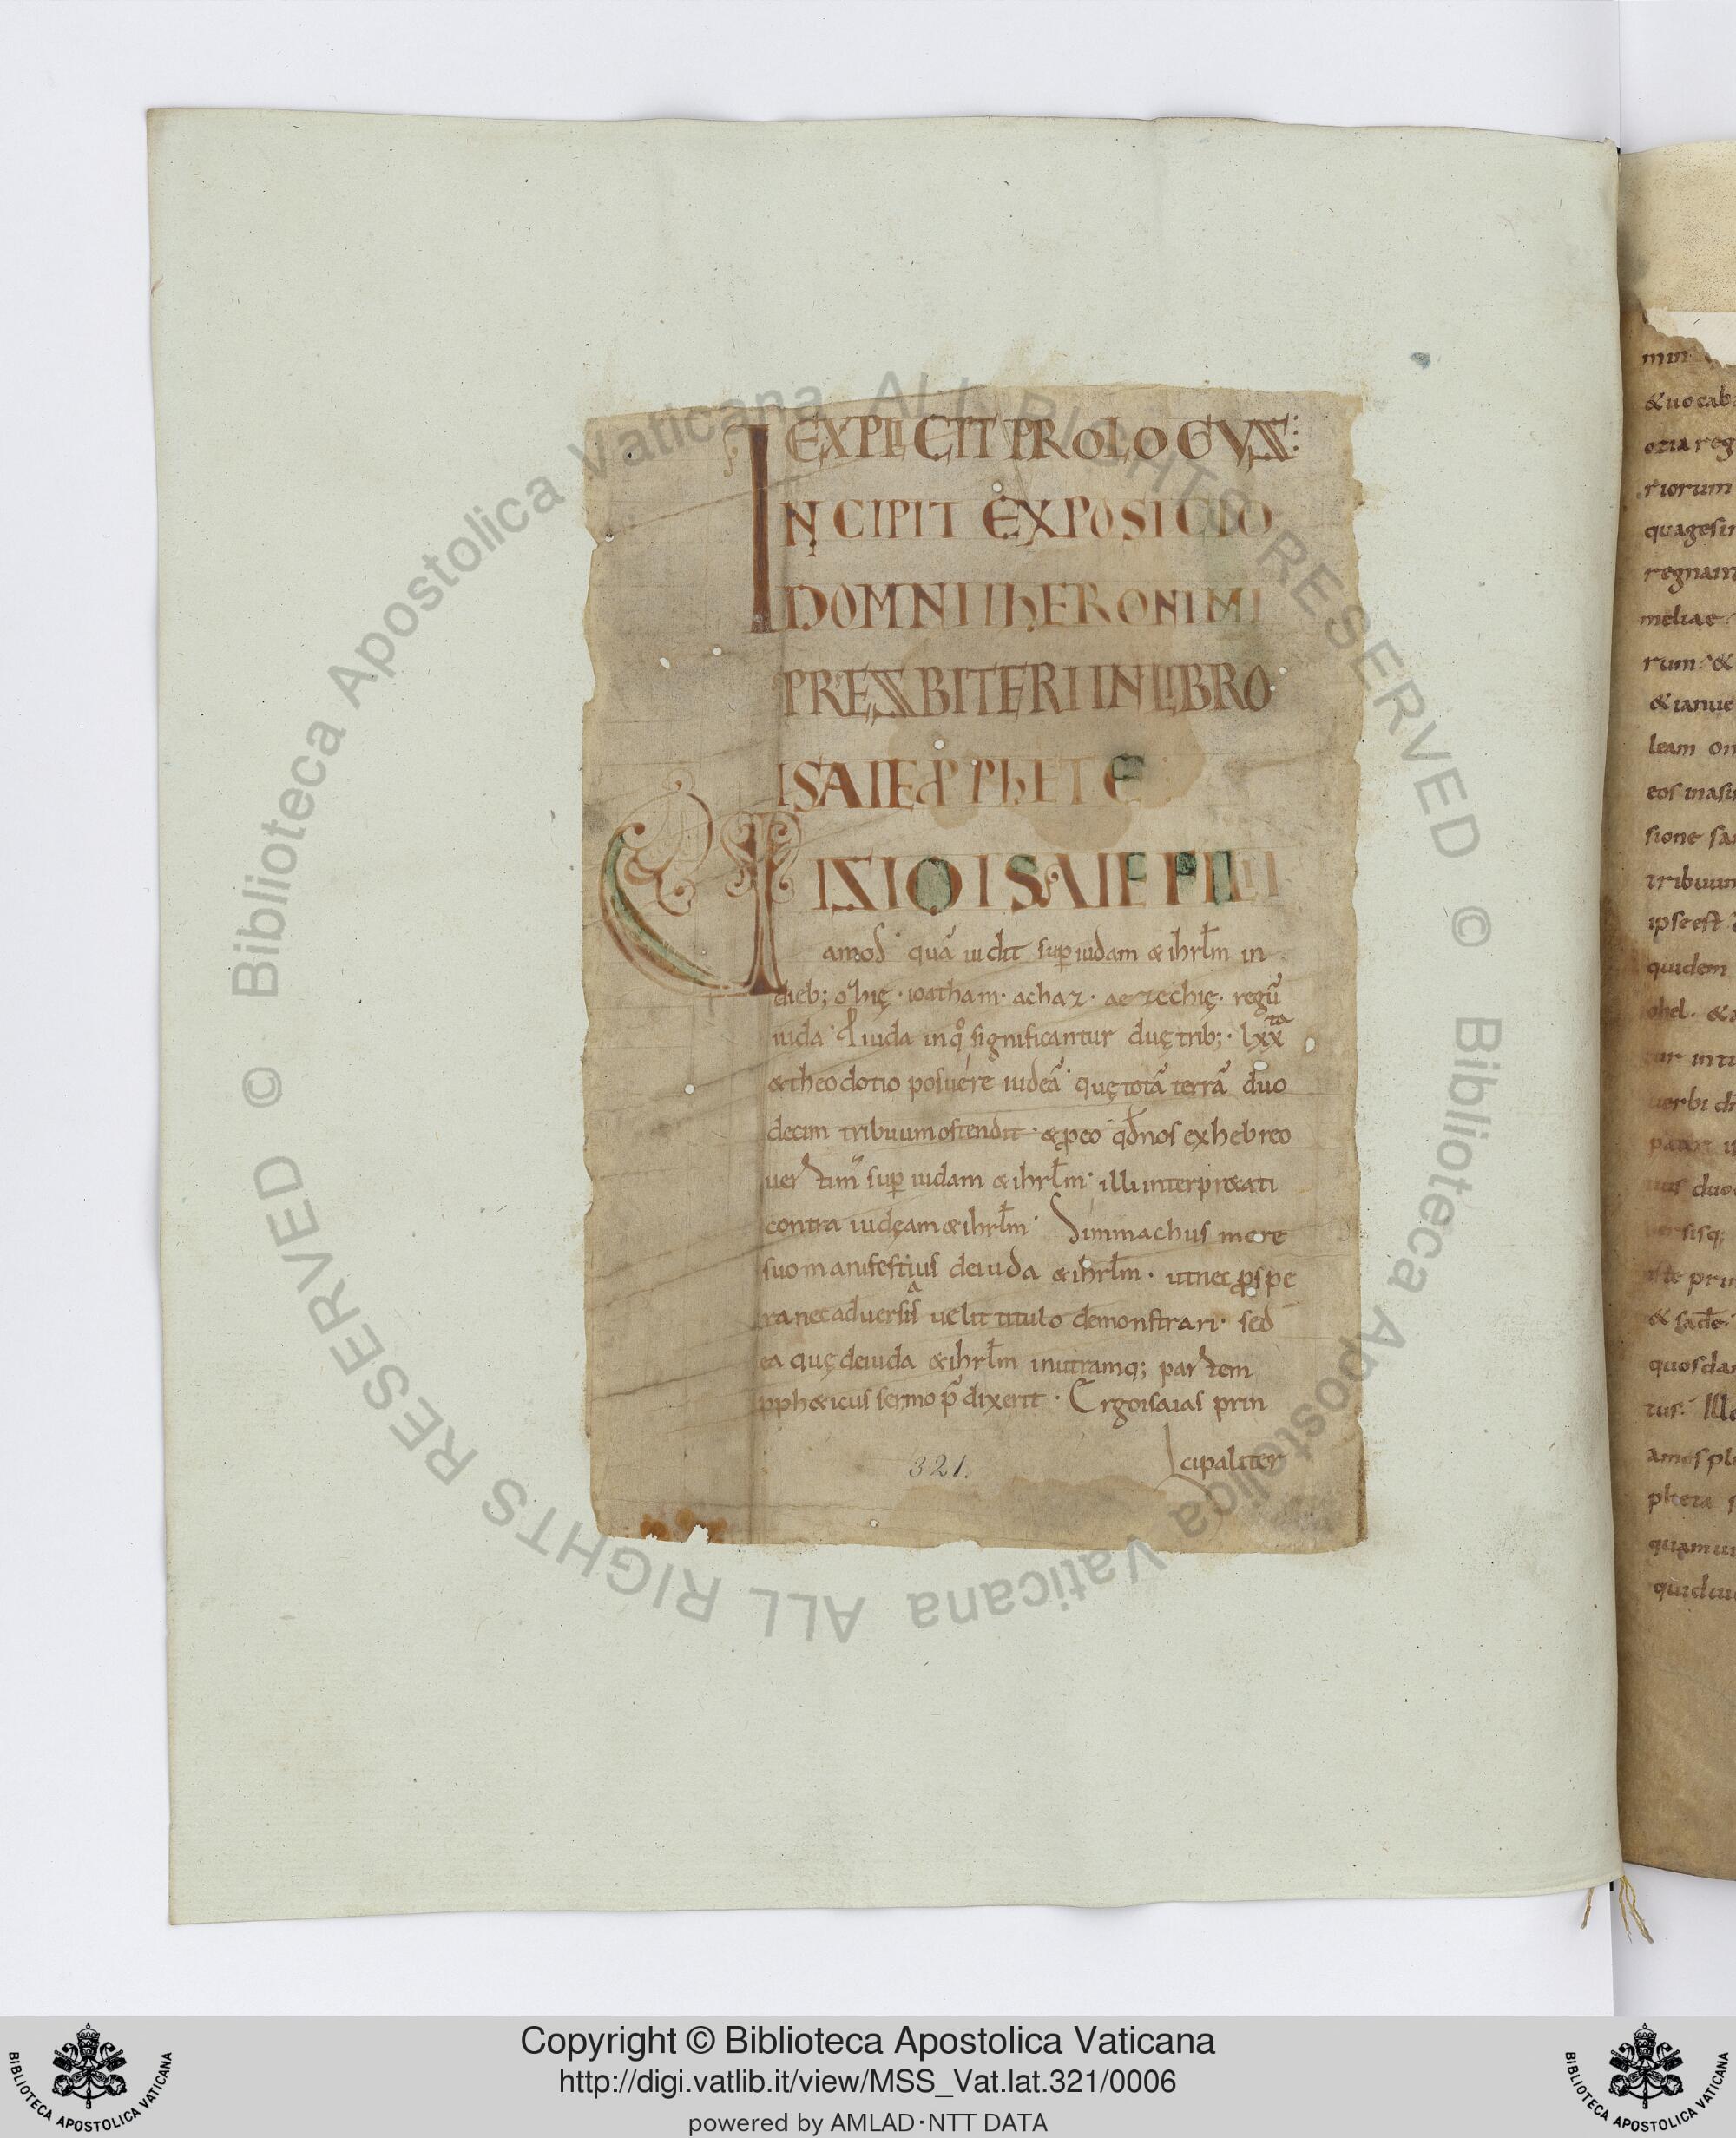 EXPLICIT PROLOGVS:
INCIPIT EXPOSICIO
DOMNI IhERONIMI
PRESBITERI IN LIBRO
ISAIE PPhETE
VISIO ISAIE FILII
amos· quā uidit sup iudam & ihrl̄m in
dieb; ozię· ioatham· achaz· ae zechię· regū
iuda· P iuda in qͦ significantur duę trib;· lxxᵗᵃ
& theodotio posuere iudeā· quę totā terrā duo
decim tribuum ostendit· & p eo qd̄ nos ex hebreo
uer tim̄ sup iudam & ihrl̄m· illi interpr&ati
contra iudęam & ihrl̄m· Simmachus more
suo manifestius de iuda & ihrl̄m· ut nec pspe
ra nec aduersa uelit titulo demonstrari· sed
ea quę de iuda & ihrl̄m in utramq; partem
pph&icus sermo p̄dixerit· Ergo isaias prin
cipaliter
321.
min
& uocab
ozia reg
riorum
quagesi
regnam
meliae
rum· &
& ianue
leam on
eos in asi
sione sa
tribuum
ipse est
quidem
ohel· &
ur in tu
uerbi di
duo
ersisq;
te pri
& sade·
quosda
tus· Ille
amos pl
pheta s
quam ui
quid ui
Copyright © Biblioteca Apostolica Vaticana
http://digi.vatlib.it/view/MSS_Vat.lat.321/0006
powered by AMLAD·NTT DATA
BIBLIOTECA APOSTOLICA VATICANA
BIBLIOTECA APOSTOLICA VATICANA
© Biblioteca Apostolica Vaticana ALL RIGHTS RESERVED
© Biblioteca Apostolica Vaticana ALL RIGHTS RESERVED